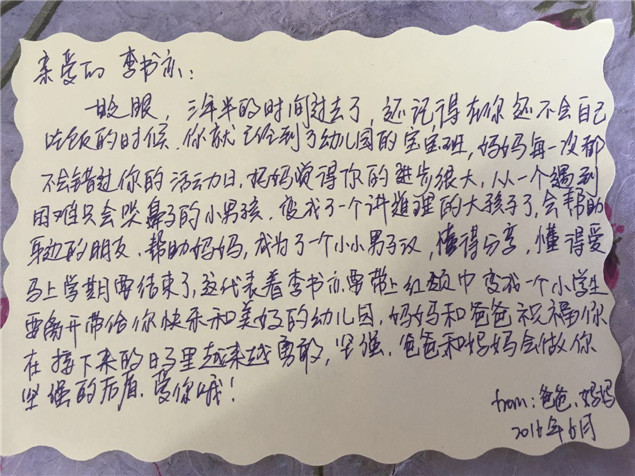 亲爱的 李书亦：
一眨眼，三年半的时间过去了，还记得在你还不会自己
吃饭的时候，你就已经到了幼儿园的宝宝班，妈妈每一次都
不会错过你的活动日，妈妈觉得你的进步很大，从一个遇到
困难只会哭鼻子的小男孩，变成了一个讲道理的大孩子了，会帮助
身边的朋友、帮助妈妈，成为了一个小小男子汉，懂得分享，懂得爱
马上学期要结束了，这代表着李书亦要带上红领巾变成一个小学生
要离开带给你快乐和美好的幼儿园，妈妈和爸爸祝福你
在接下来的日子里越来越勇敢，坚强。爸爸和妈妈会做你
坚强的后盾。爱你哦！
from：爸爸、妈妈
2016年6月